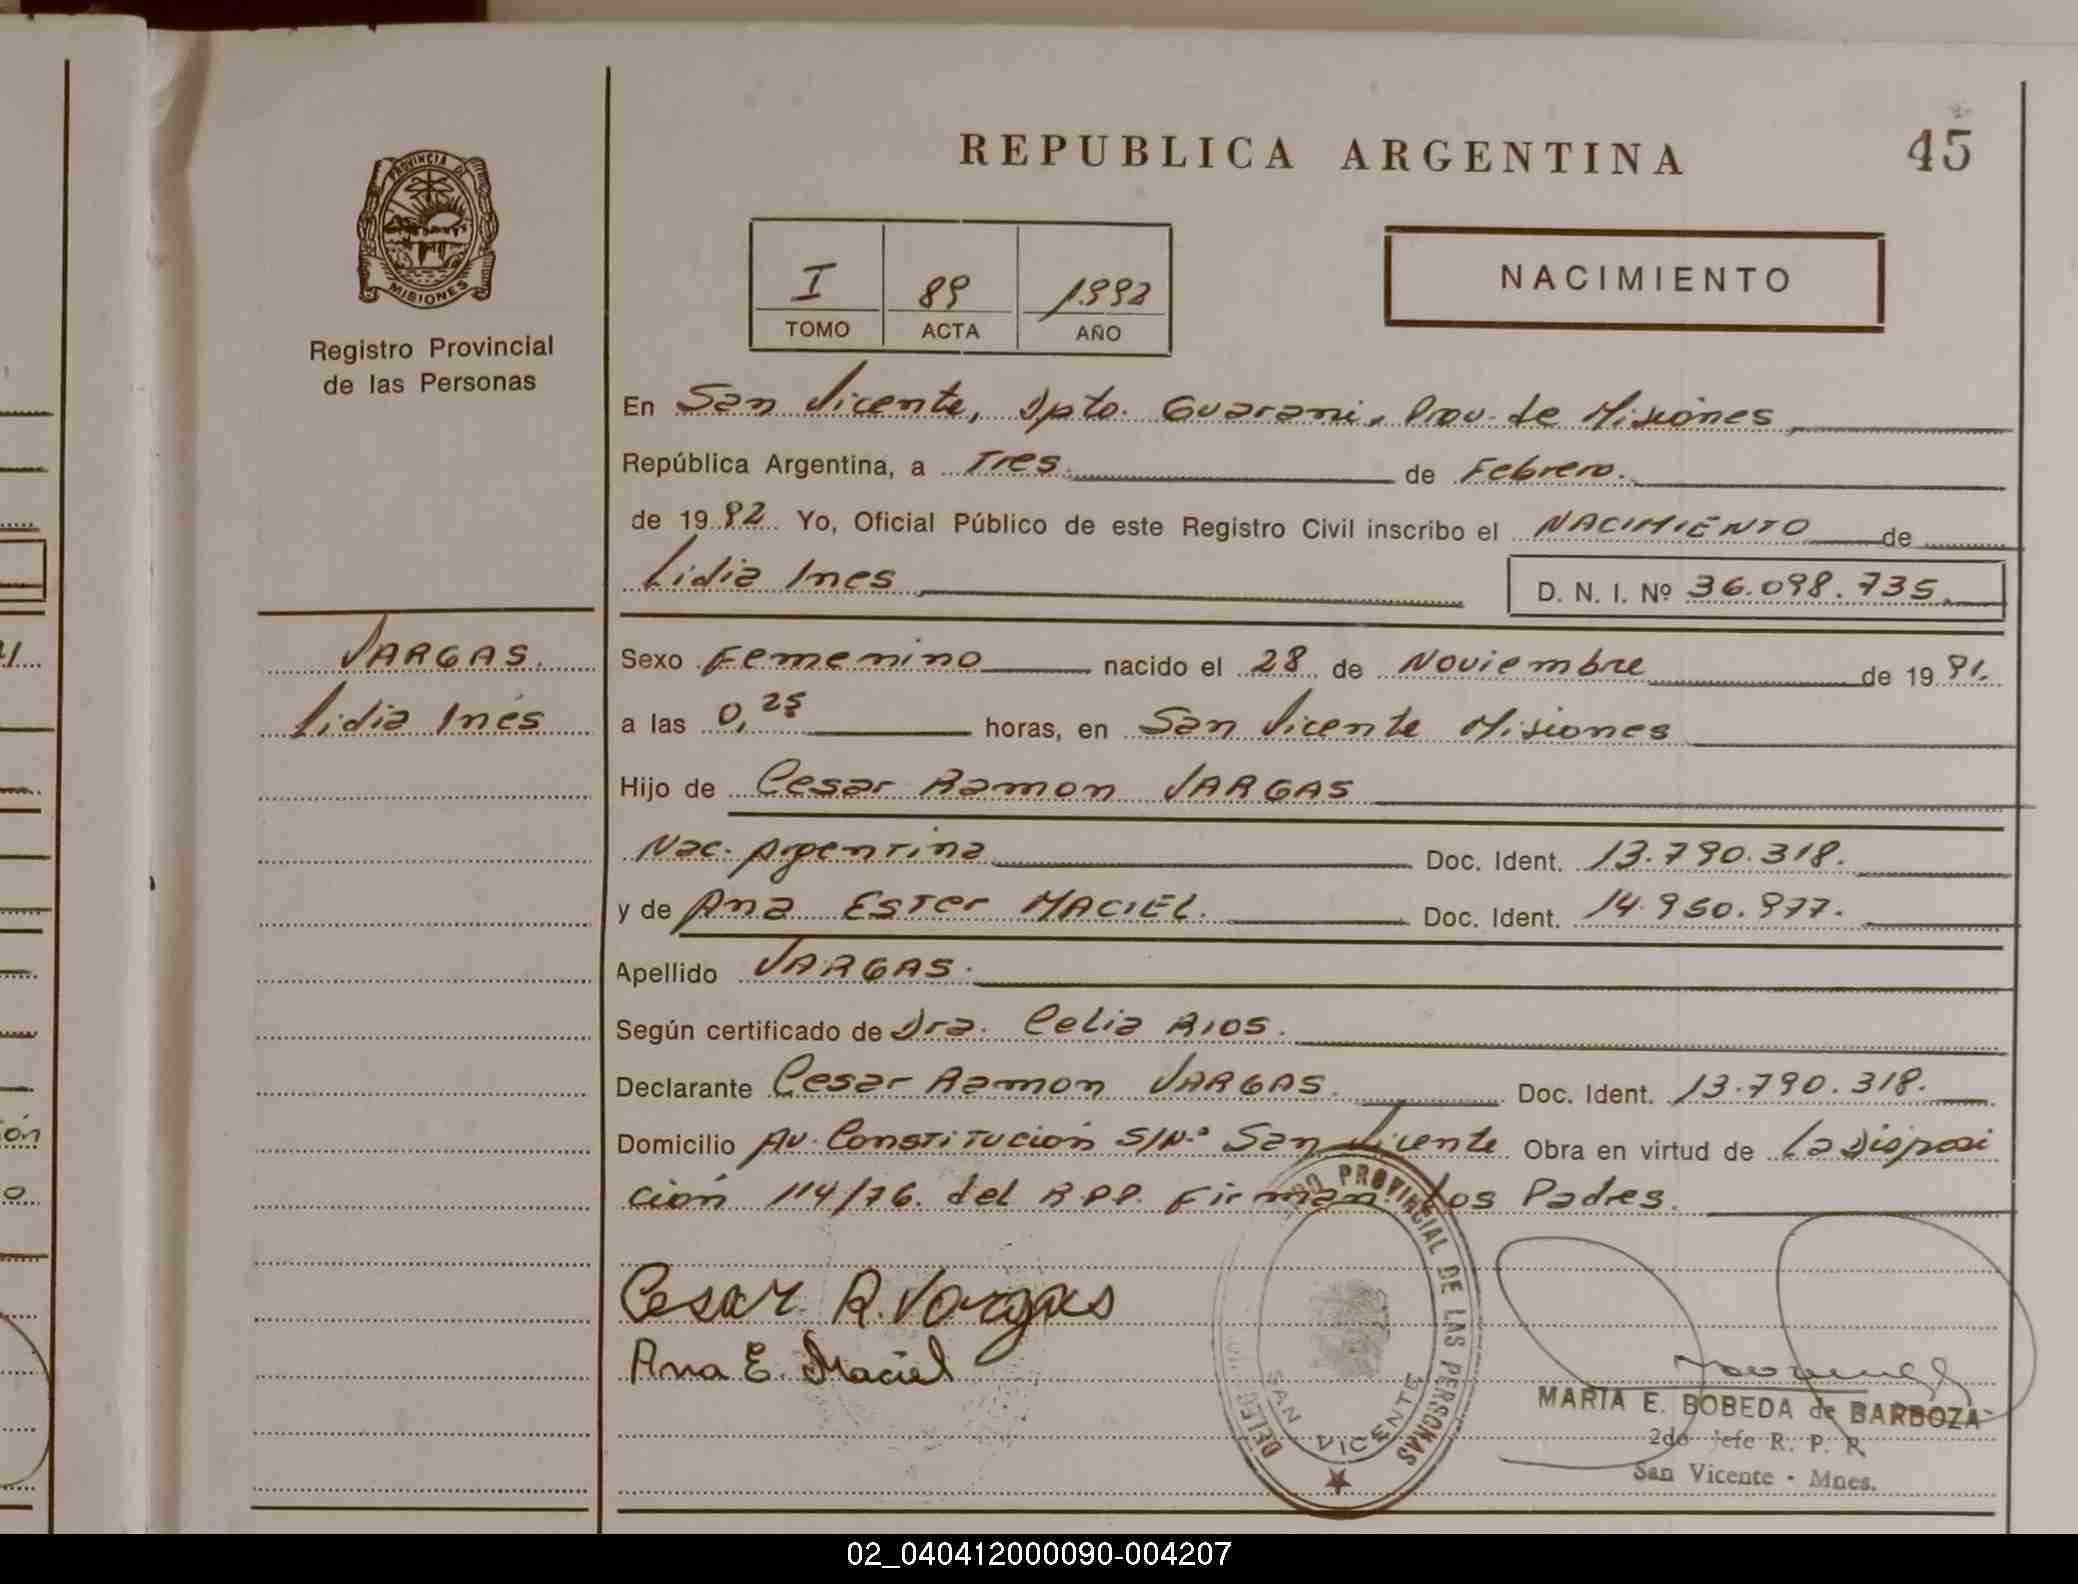 REPUBLICA ARGENTINA
45
PROVINCIA DE
MISIONES
Registro Provincial
de las Personas
I
89
1992
TOMO
ACTA
AÑO
NACIMIENTO
En San Vicente, Dpto. Guarani, Prov. de Misiones
República Argentina, a Tres de Febrero.
de 1992 Yo, Oficial Público de este Registro Civil inscribo el NACIMIENTO de
Lidia Ines
D. N. I. Nº 36.098.735.
VARGAS.
Lidia Inés
Sexo Femenino nacido el 28 de Noviembre de 1991.
a las 0,25 horas, en San Vicente Misiones
Hijo de Cesar Ramon VARGAS
Nac. Argentina Doc. Ident. 13.790.318.
y de Ana Ester MACIEL. Doc. Ident. 14.950.977.
Apellido VARGAS.
Según certificado de Dra. Celia RIOS.
Declarante Cesar Ramon VARGAS. Doc. Ident. 13.790.318.
Domicilio Av. Constitución S/Nº San Vicente Obra en virtud de La Disposi
ción 114/76. del R.P.P. Firman Los Padres.
Cesar R. Vargas
Ana E. Maciel
PROVINCIAL DE LAS PERSONAS
SAN VICENTE
MARIA E. BOBEDA de BARBOZA
2do jefe R. P. P.
San Vicente - Mnes.
ón
02_040412000090-004207